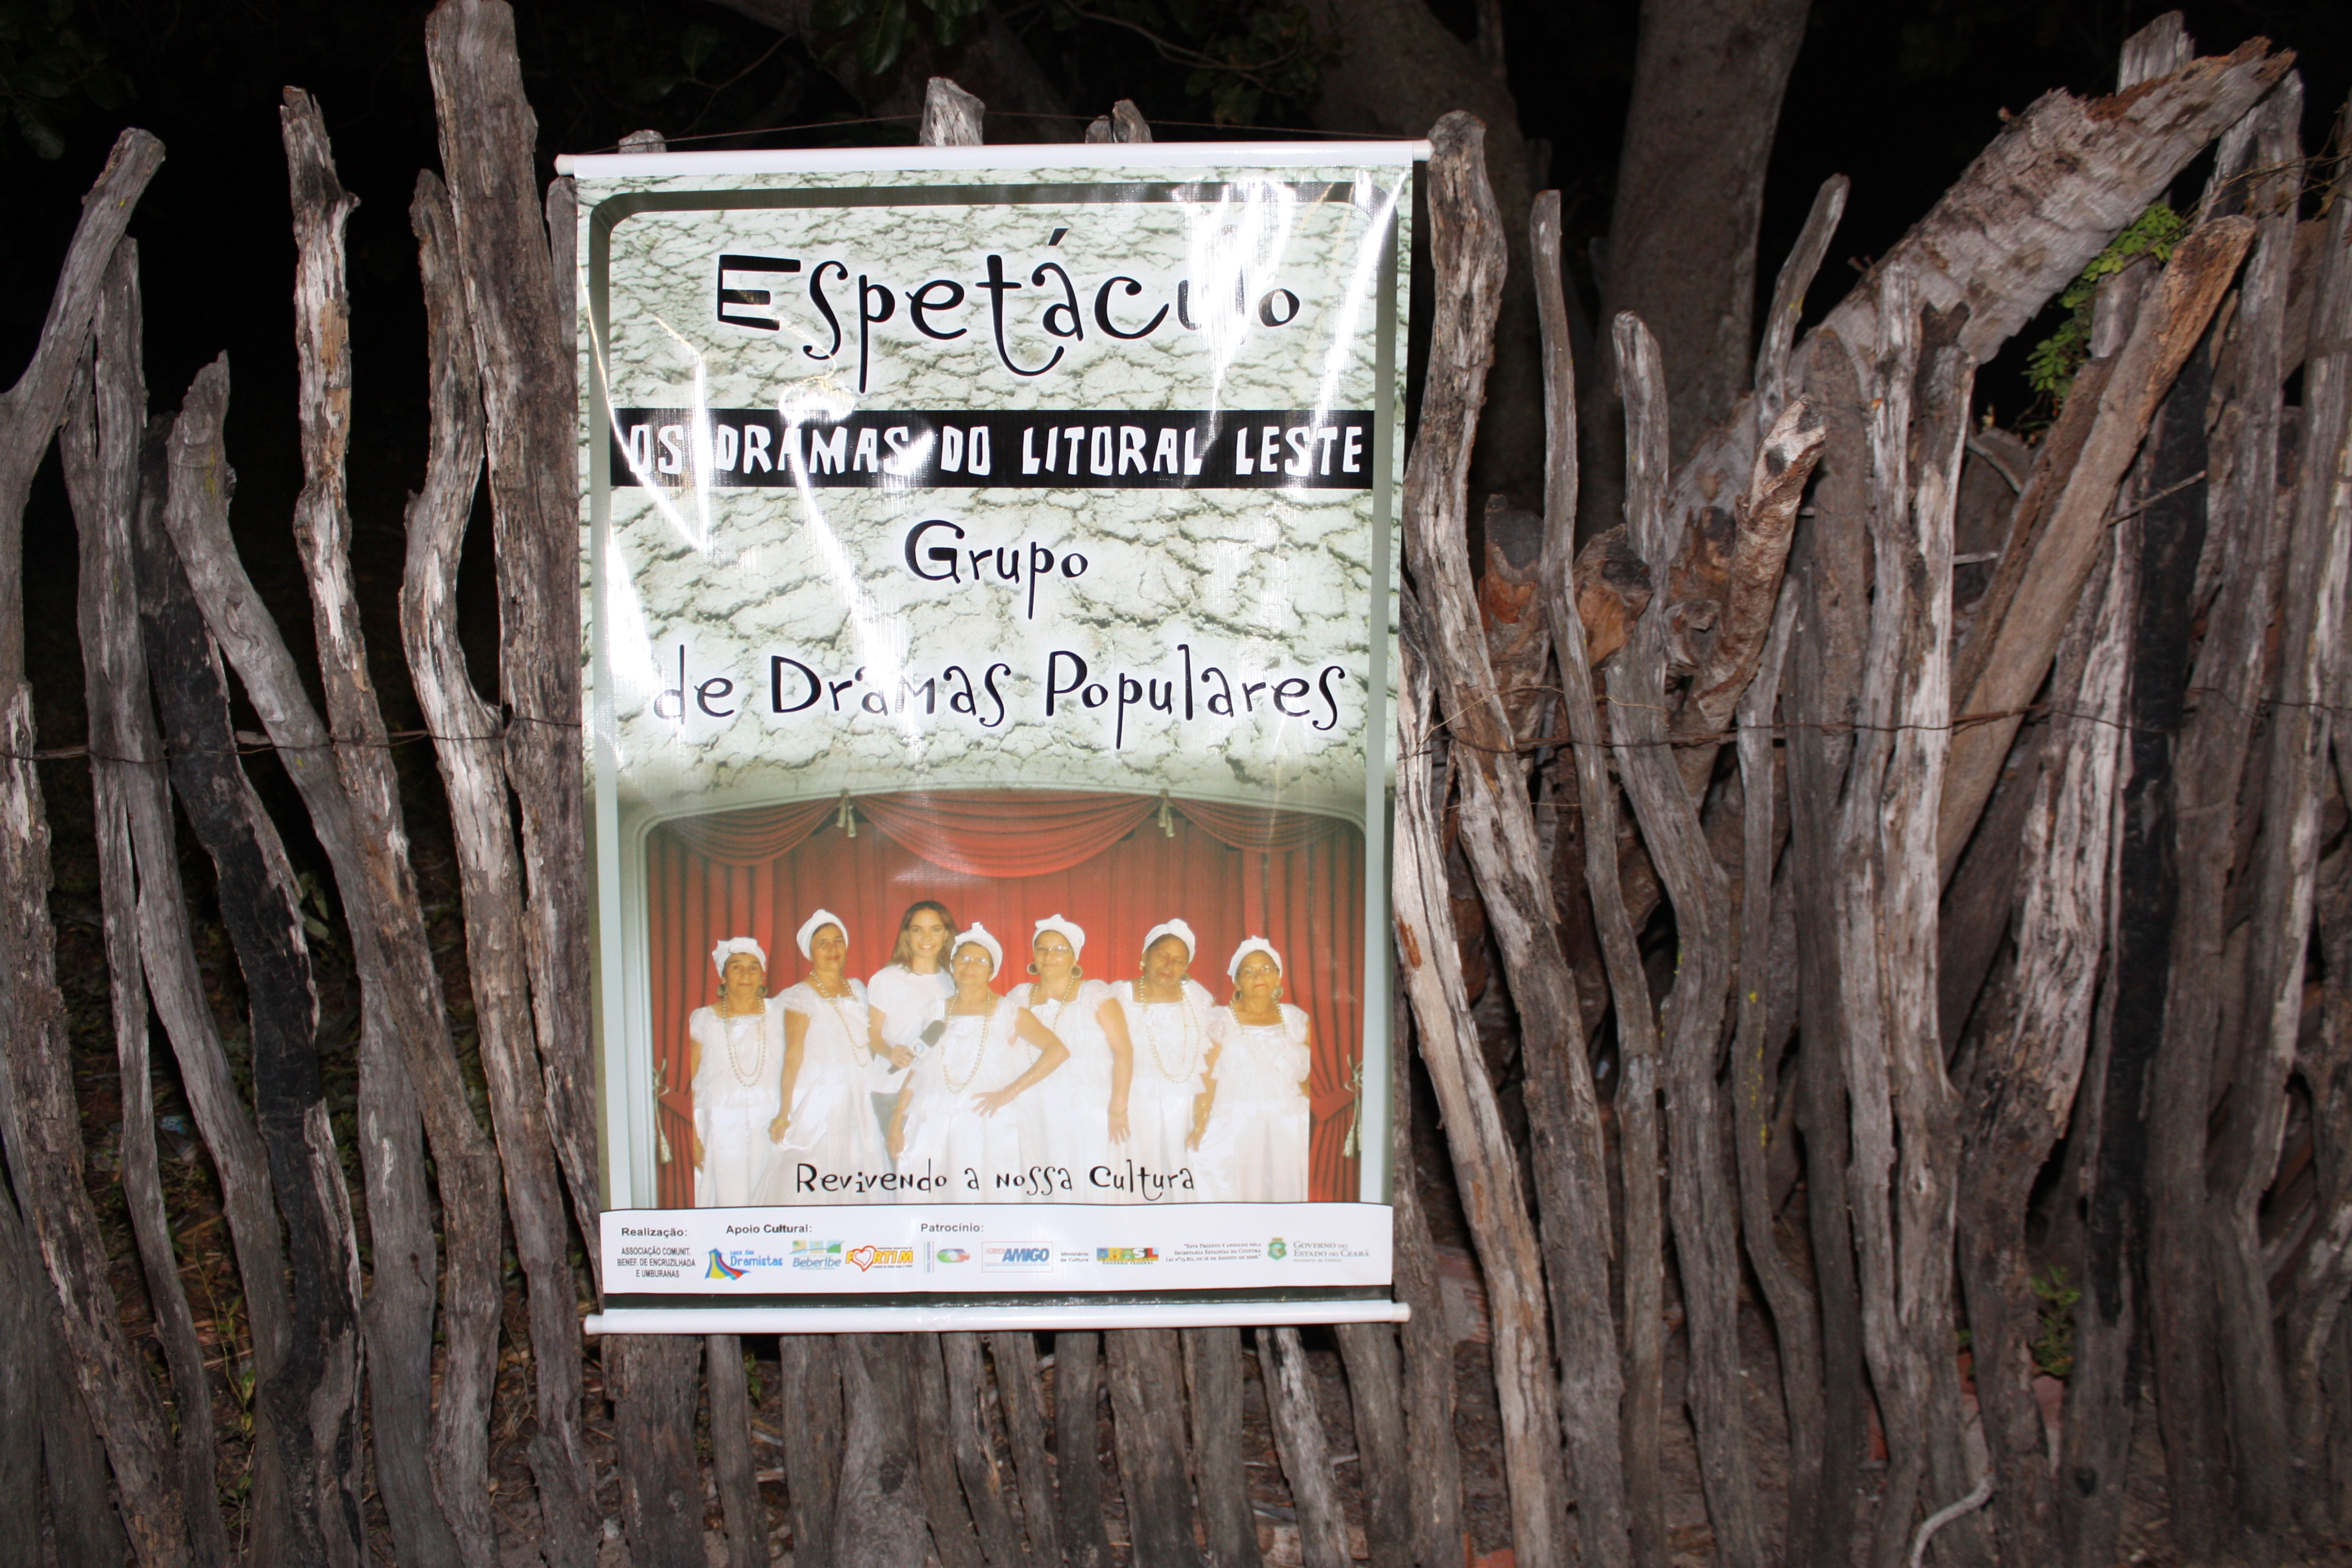 Espetáculo
OS DRAMAS DO LITORAL LESTE
Grupo
de Dramas Populares
Revivendo a nossa Cultura
Realização:
ASSOCIAÇÃO COMUNIT.
BENEF. DE ENCRUZILHADA
E UMBURANAS
Apoio Cultural:
casa das
Dramistas
Beberibe
FORTIM
Patrocínio:
AMIGO
Ministério
da Cultura
BRASIL
GOVERNO FEDERAL
"Este Projeto é apoiado pela
Secretaria Estadual da Cultura
Governo do
Estado do Ceará